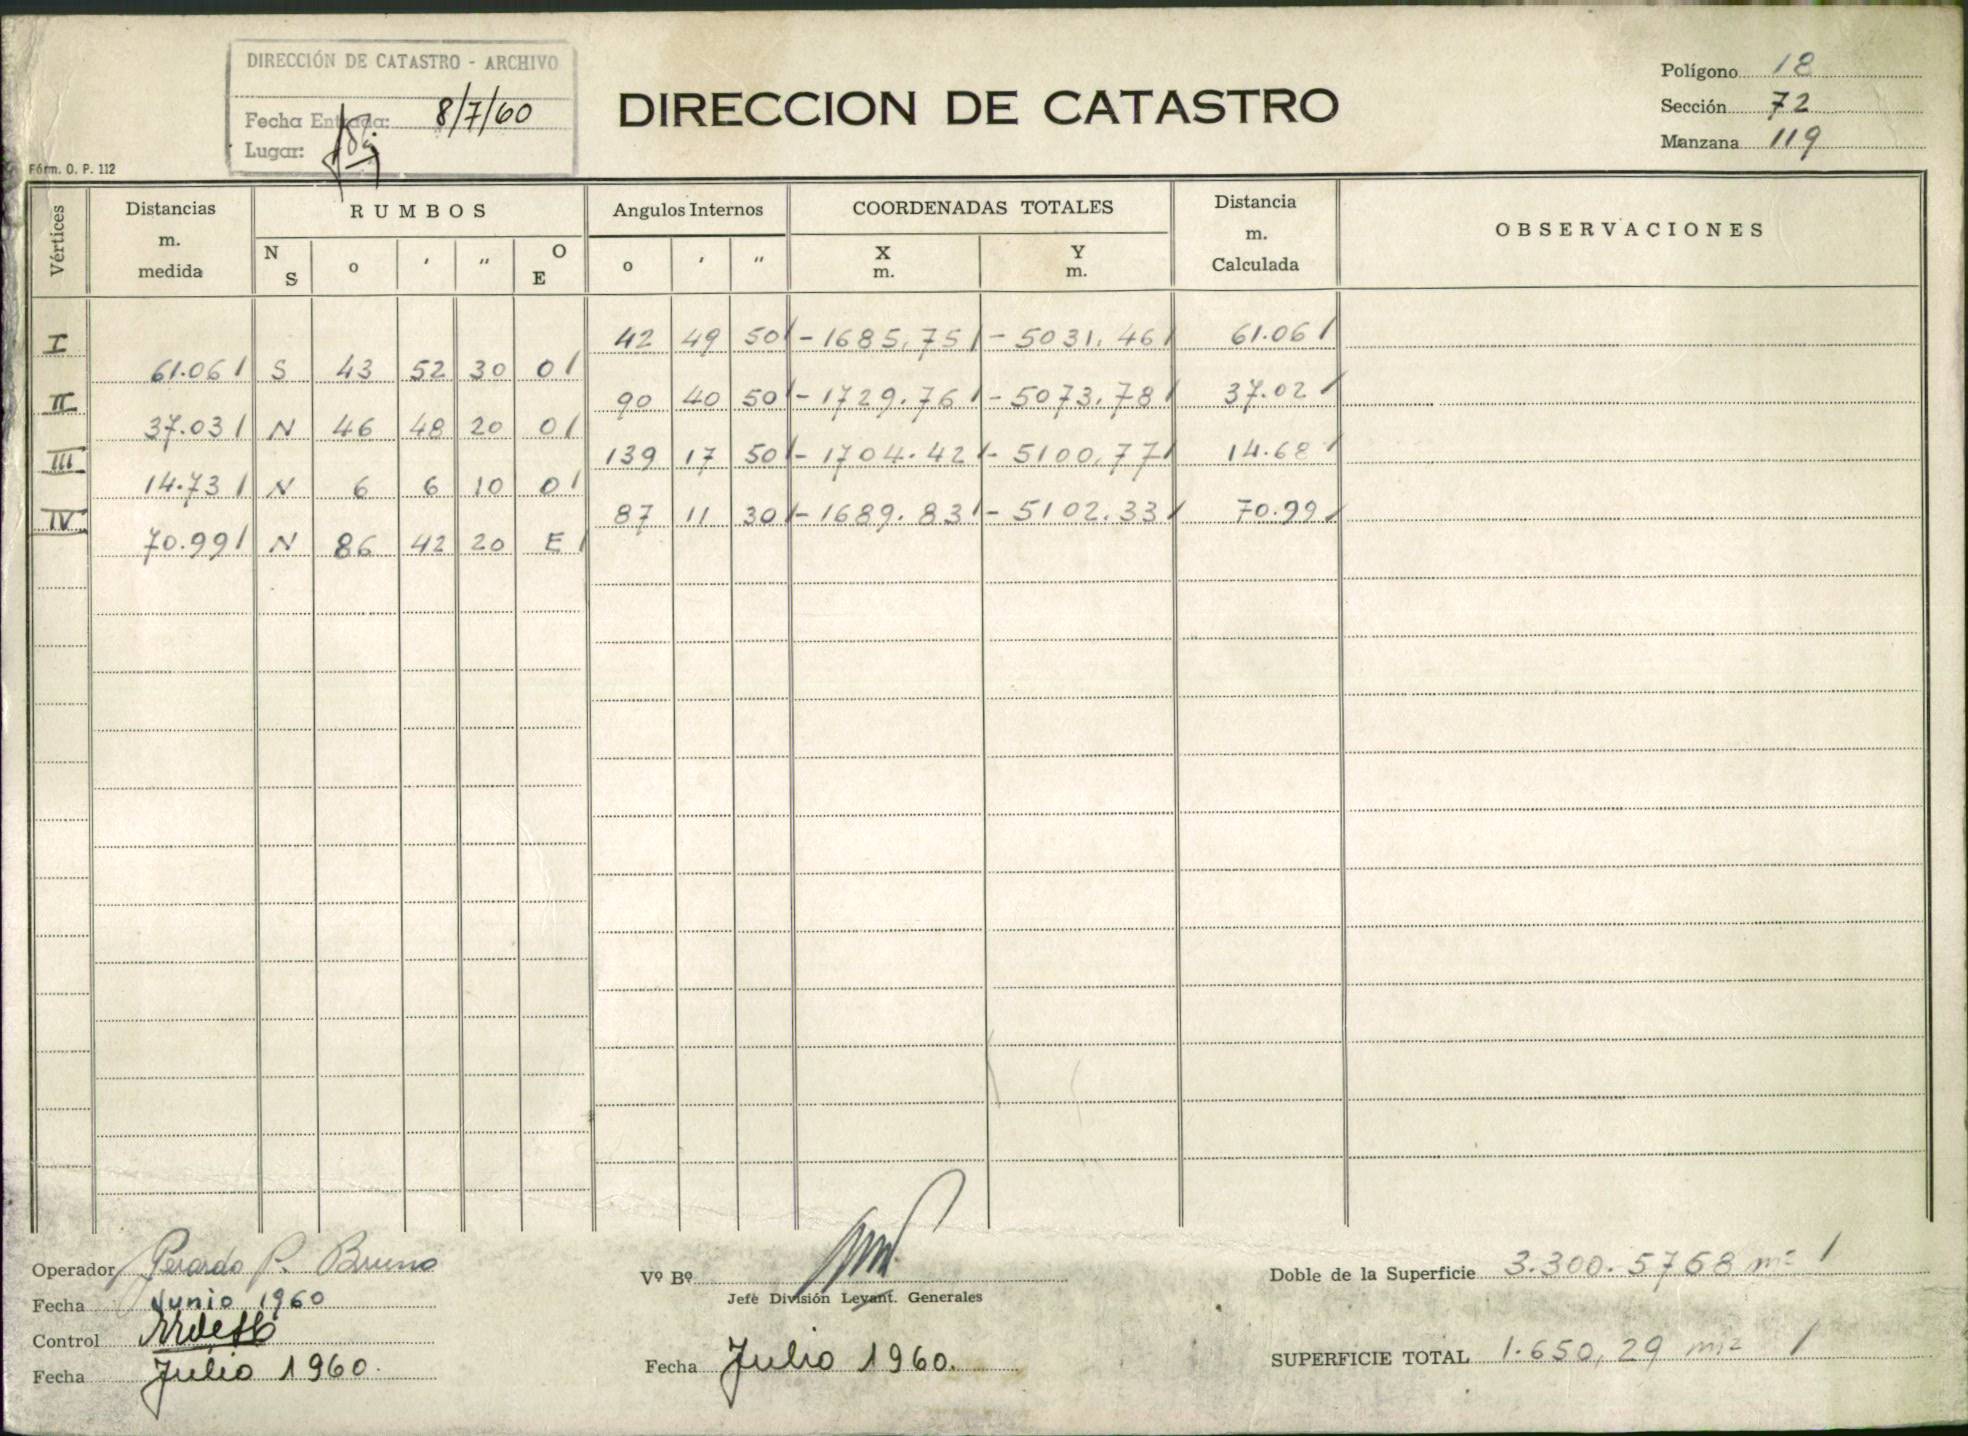 DIRECCIÓN DE CATASTRO - ARCHIVO
Fecha Entrada: 8/7/60
Lugar:
DIRECCION DE CATASTRO
Polígono 18
Sección 72
Manzana 119
Fórm. O. P. 112
Vértices
Distancias m. medida
RUMBOS
N S o ′ ″ O E
Angulos Internos
o ′ ″
COORDENADAS TOTALES
X m. Y m.
Distancia m. Calculada
OBSERVACIONES
I 42 49 50 -1685,75 -5031.46 61.06
61.06 S 43 52 30 O
II 90 40 50 -1729.76 -5073.78 37.02
37.03 N 46 48 20 O
III 139 17 50 -1704.42 -5100,77 14.68
14.73 N 6 6 10 O
IV 87 11 30 -1689.83 -5102.33 70.99
70.99 N 86 42 20 E
Operador Gerardo P. Bruno
Fecha Junio 1960
Control
Fecha Julio 1960.
Vº Bº
Jefe División Levant. Generales
Fecha Julio 1960.
Doble de la Superficie 3.300.5768 m²
SUPERFICIE TOTAL 1.650,29 m²